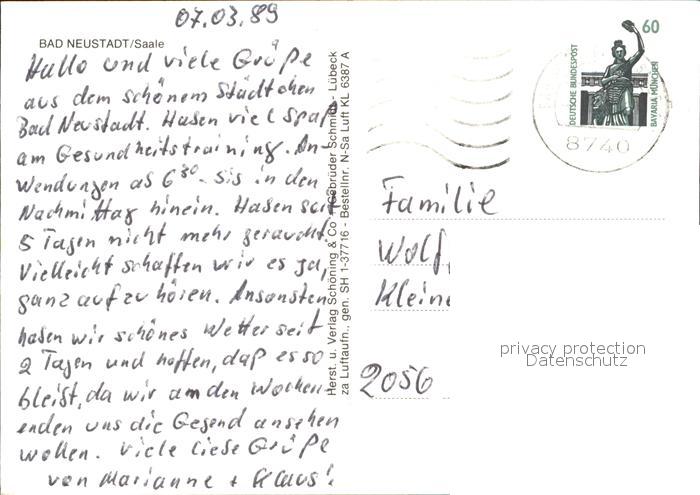 07.03.89
BAD NEUSTADT/Saale
Hallo und viele Grüße
aus dem schönem Städtchen
Bad Neustadt. Haben viel Spaß
am Gesundheitstraining. An-
wendungen ab 6³⁰ - bis in den
Nachmittag hinein. Haben seit
5 Tagen nicht mehr geraucht.
Vielleicht schaffen wir es ja,
ganz aufzuhören. Ansonsten
haben wir schönes Wetter seit
2 Tagen und hoffen, daß es so
bleibt, da wir am den Wochen-
enden uns die Gegend ansehen
wollen. Viele liebe Grüße
von Marianne + Klaus!
Herst. u. Verlag Schöning & Co + Gebrüder Schmidt - Lübeck
za Luftaufn., gen. SH 1-37716 - Bestellnr. N-Sa Luft KL 6387 A
60
DEUTSCHE BUNDESPOST
BAVARIA MÜNCHEN
8740
Familie
Wolf
Klein
2056
privacy protection
Datenschutz